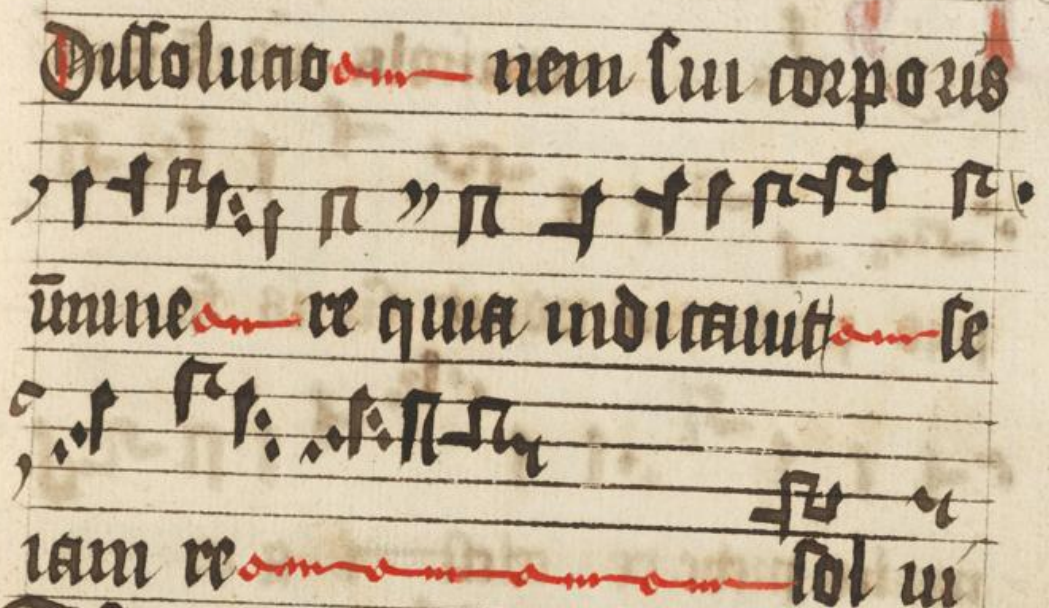 Dissolucio nem sui corporis
ūmine re quia indicauit se
iam re sol ui